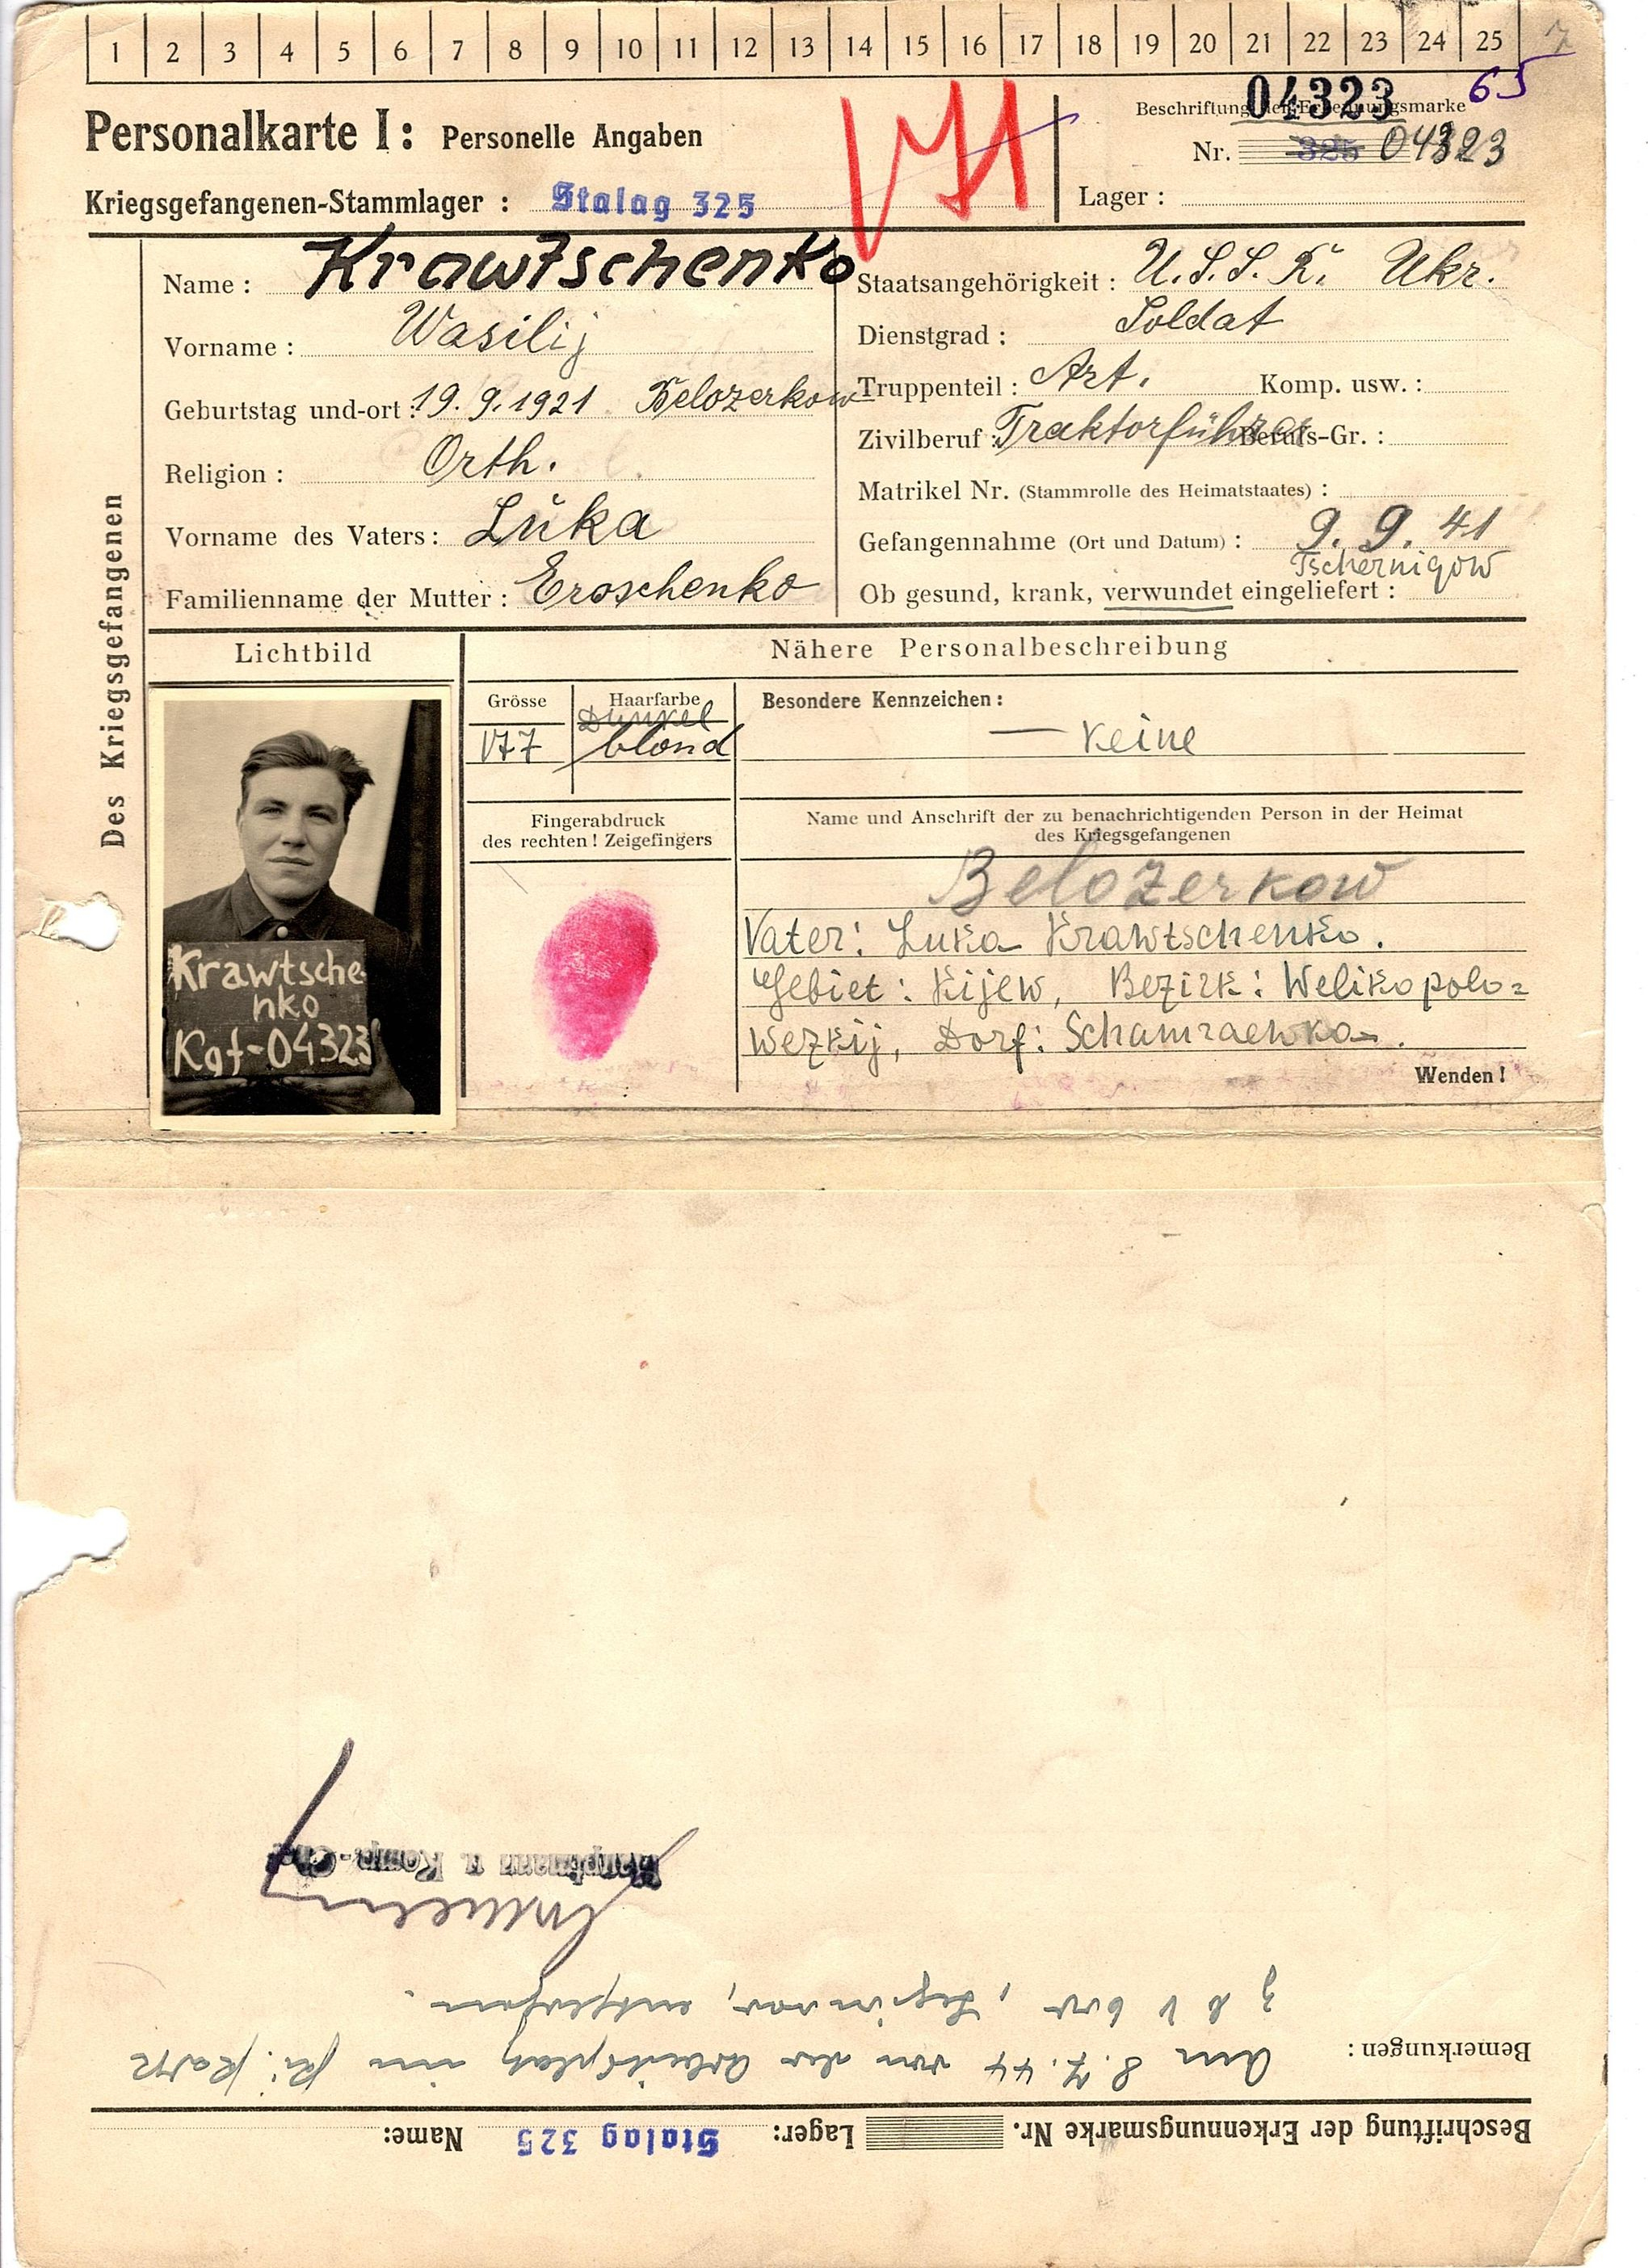 1 2 3 4 5 6 7 8 9 10 11 12 13 14 15 16 17 18 19 20 21 22 23 24 25
65
Personalkarte I: Personelle Angaben
Kriegsgefangenen-Stammlager: Stalag 325
VII
04323
Beschriftung der Erkennungsmarke
Nr. 325 04323
Lager:
Des Kriegsgefangenen
Name: Krawtschenko
Vorname: Wasilij
Geburtstag und-ort: 19.9.1921 Belozerkow
Religion: Orth.
Vorname des Vaters: Luka
Familienname der Mutter: Eroschenko
Staatsangehörigkeit: U.S.S.R. Ukr.
Dienstgrad: Soldat
Truppenteil: Art. Komp. usw.:
Zivilberuf: Traktorführer Berufs-Gr.:
Matrikel Nr. (Stammrolle des Heimatstaates):
Gefangennahme (Ort und Datum): 9.9.41
Tschernigow
Ob gesund, krank, verwundet eingeliefert:
Lichtbild
Krawtsche
nko
Kgf-04323
Nähere Personalbeschreibung
Grösse
177
Haarfarbe
Dunkel
blond
Besondere Kennzeichen:
— Keine
Fingerabdruck
des rechten! Zeigefingers
Name und Anschrift der zu benachrichtigenden Person in der Heimat
des Kriegsgefangenen
Belozerkow
Vater: Luka Krawtschenko.
Gebiet: Kijew, Bezirk: Welikopolo=
wezkij, Dorf: Schamraewka.
Wenden!
Beschriftung der Erkennungsmarke Nr. Lager: Stalag 325 Name:
Bemerkungen: Am 8.7.44 von der Arbeitsplatz im
entflohen.
Hauptmann u. Komp.-Chef